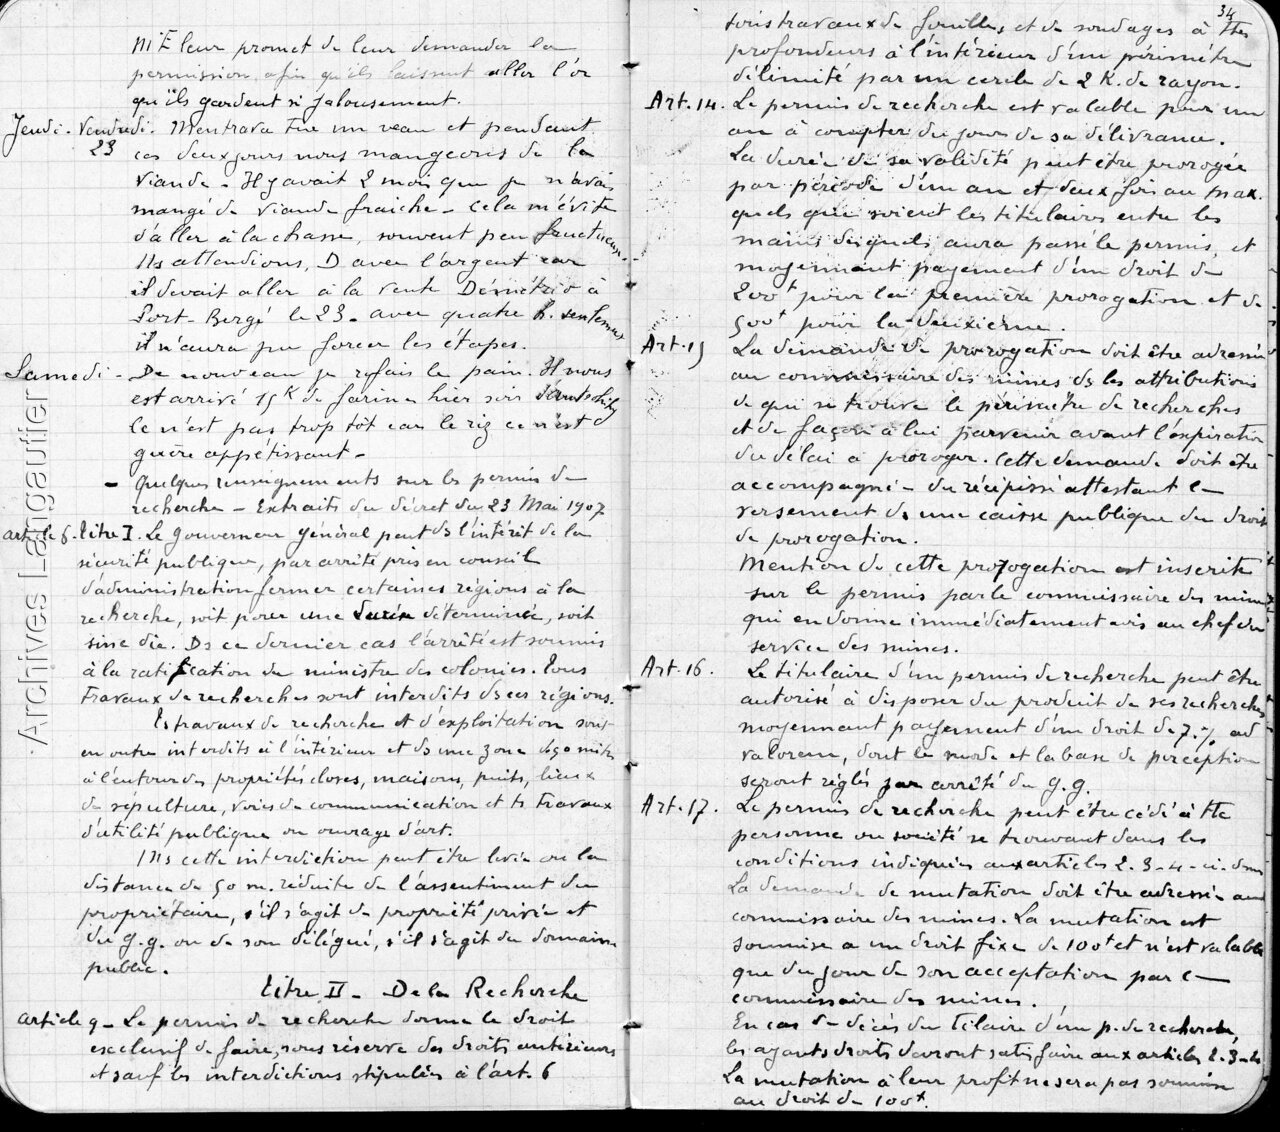 M'E leur promet de leur demander la
permission afin qu'ils laissent aller l'or
qu'ils gardent si jalousement.
Jeudi - Vendredi. Mentrava tue un veau et pendant
23 ces deux jours nous mangeons de la
viande - Il y avait 2 mois que je n'avais
mangé de viande fraiche - Cela m'évite
d'aller à la chasse, souvent peu fructueuse.
Ns attendions, D avec l'argent car
il devait aller à la vente Démétrio à
Port-Bergé le 23 - avec quatre h. seulement
il n'aura pu forcer les étapes.
Samedi - De nouveau je refais le pain. Il nous
est arrivé 15 K de farine hier soir
Ce n'est pas trop tôt car le riz ce n'est
guère appétissant -
- Quelques renseignements sur les permis de
recherche - Extraits du décret du 23 Mai 1907
article 6 - titre I. Le Gouverneur général peut ds l'intérêt de la
sécurité publique, par arrêté pris en conseil
d'administration fermer certaines régions à la
recherche, soit pour une durée déterminée, soit
sine die. Ds ce dernier cas l'arrêté est soumis
à la ratification du ministre des colonies. Tous
travaux de recherches sont interdits ds ces régions.
Ts travaux de recherche et d'exploitation sont
en outre interdits à l'intérieur et ds une zone de 50 mètres
à l'entour des propriétés closes, maisons, puits, lieux
de sépulture, voies de communication et ts travaux
d'utilité publique ou ouvrage d'art.
Ms cette interdiction peut être levée ou la
distance de 50 m. réduite de l'assentiment du
propriétaire, s'il s'agit de propriété privée et
du G.G. ou de son délégué, s'il s'agit du domaine
public.
Titre II - De la Recherche
article 9 - Le permis de recherche donne le droit
exclusif de faire, sous réserve des droits antérieurs
et sauf les interdictions stipulées à l'art. 6
34
tous travaux de fouilles et de sondages à ttes
profondeurs à l'intérieur d'un périmètre
délimité par un cercle de 2 K. de rayon.
Art. 14. Le permis de recherche est valable pour un
an à compter du jour de sa délivrance.
La durée de sa validité peut être prorogée
par période d'un an et deux fois au max.
quels que soient les titulaires entre les
mains desquels aura passé le permis, et
moyennant payement d'un droit de
200f pour la première prorogation et de
500f pour la deuxième.
Art. 15 La demande de prorogation doit être adressée
au commissaire des mines ds les attributions
de qui se trouve le périmètre de recherches
et de façon à lui parvenir avant l'expiration
du délai à proroger. Cette demande doit être
accompagnée du récépissé attestant le
versement ds une caisse publique du droit
de prorogation.
Mention de cette prorogation est inscrite
sur le permis par le commissaire des mines
qui en donne immédiatement avis au chef du
service des mines.
Art. 16. Le titulaire d'un permis de recherche peut être
autorisé à disposer du produit de ses recherches
moyennant payement d'un droit de 7 % ad
valorem, dont le mode et la base de perception
seront réglés par arrêté du G.G.
Art. 17. Le permis de recherche peut être cédé à tte
personne ou société se trouvant dans les
conditions indiquées aux articles 2-3-4- ci-dessus
La demande de mutation doit être adressée aux
commissaire des mines. La mutation est
soumise à un droit fixe de 100f et n'est valable
que du jour de son acceptation par le
commissaire des mines.
En cas de décès du titlaire d'un p. de recherche,
les ayants droits devront satisfaire aux articles 2-3-4
La mutation à leur profit ne sera pas soumise
au droit de 100f.
Archives Langautier